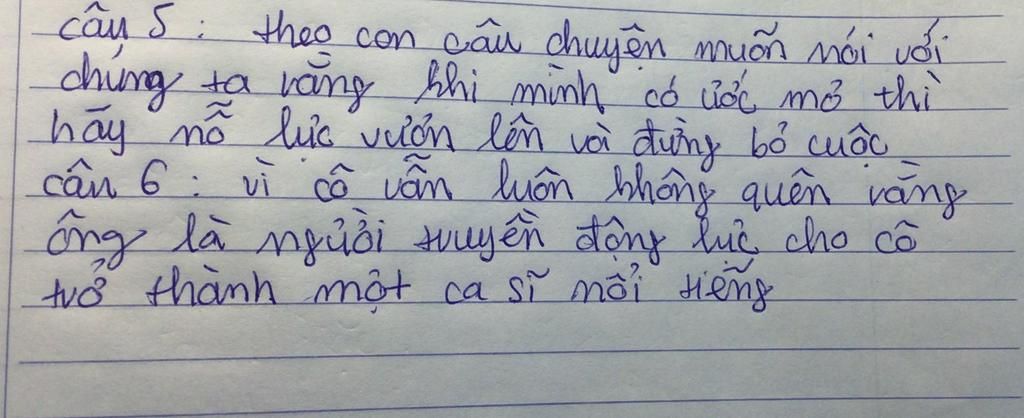 câu 5 : theo con câu chuyện muốn nói với
chúng ta rằng khi mình có ước mơ thì
hãy nỗ lực vươn lên và đừng bỏ cuộc
câu 6 : vì cô vẫn luôn không quên rằng
ông là người truyền động lực cho cô
trở thành một ca sĩ nổi tiếng